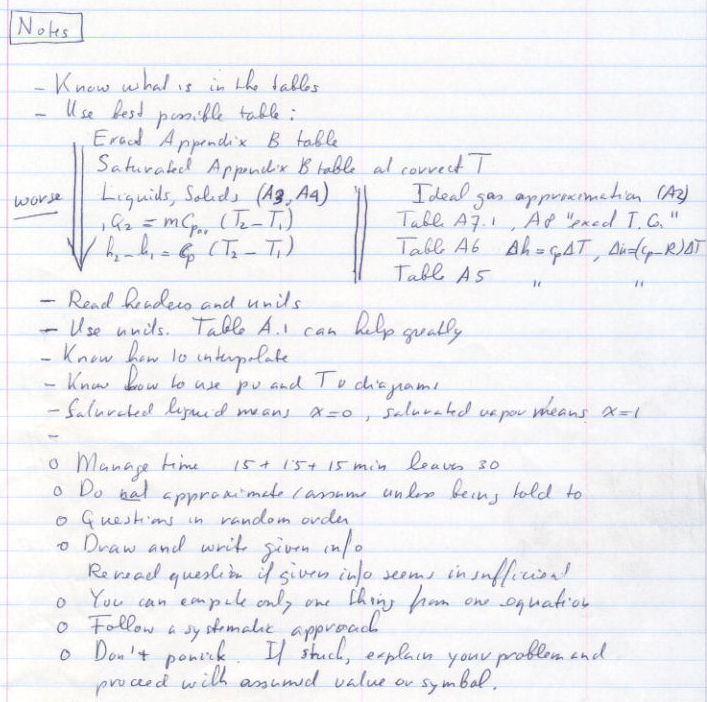 Notes
- Know what is in the tables
- Use best possible table :
Exact Appendix B table
Saturated Appendix B table at correct T
worse
Liquids, Solids (A3, A4)
1Q2 = mCpav (T2 - T1)
h2 - h1 = Cp (T2 - T1)
Ideal gas approximation (A2)
Table A7.1, A8 "exact I.G."
Table A6 Δh = cpΔT, Δu=(cp-R)ΔT
Table A5 " "
- Read headers and units
- Use units. Table A.1 can help greatly
- Know how to interpolate
- Know how to use pv and Tv diagrams
- Saturated liquid means x=0, saturated vapor means x=1
-
o Manage time 15+15+15 min leaves 30
o Do not approximate/assume unless being told to
o Questions in random order
o Draw and write given info
Reread question if given info seems insufficient
o You can compute only one thing from one equation
o Follow a systematic approach
o Don't panick. If stuck, explain your problem and
proceed with assumed value or symbol.